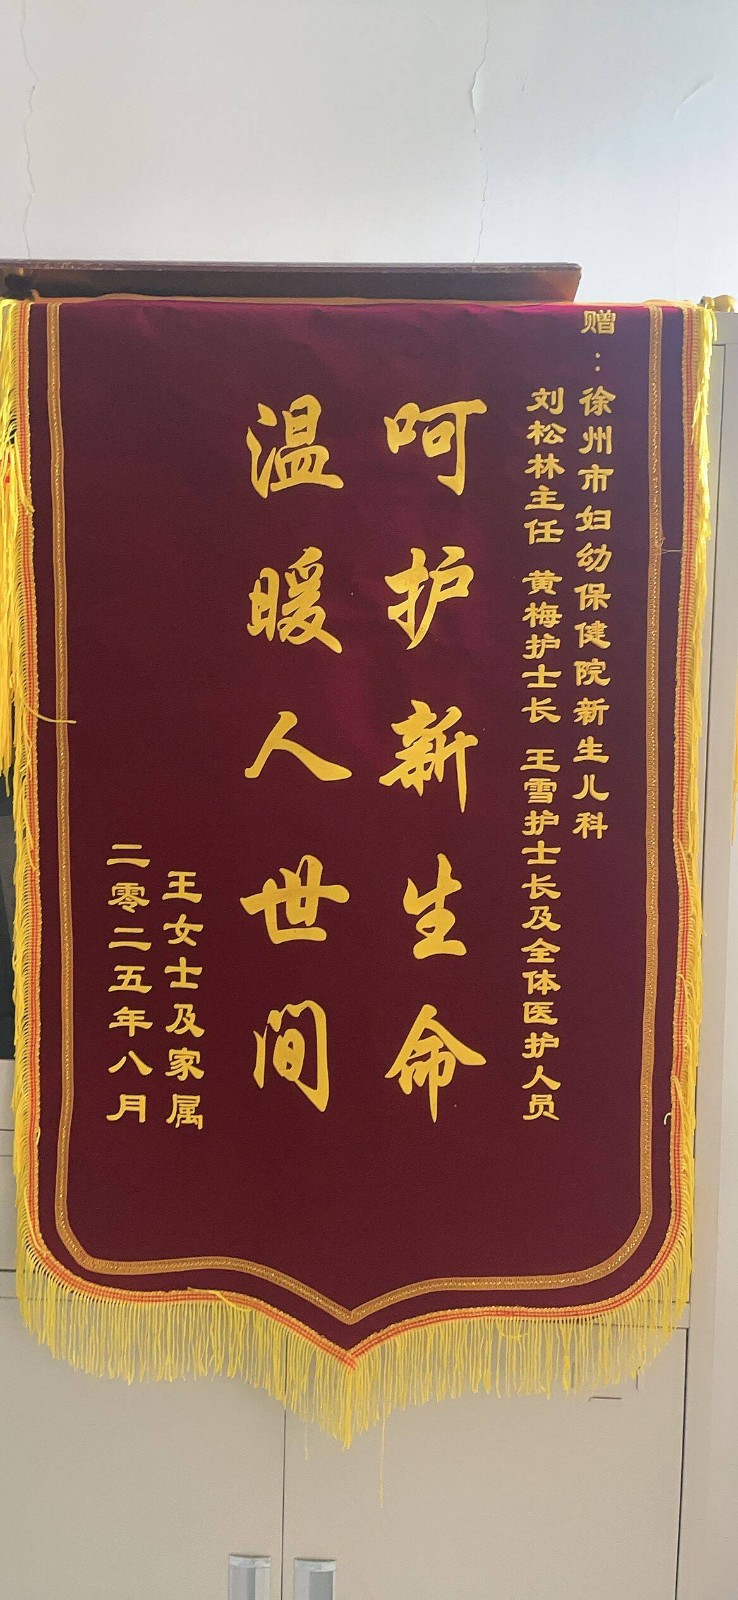 赠：徐州市妇幼保健院新生儿科
刘松林主任 黄梅护士长 王雪护士长及全体医护人员
呵护新生命
温暖人世间
王女士及家属
二零二五年八月